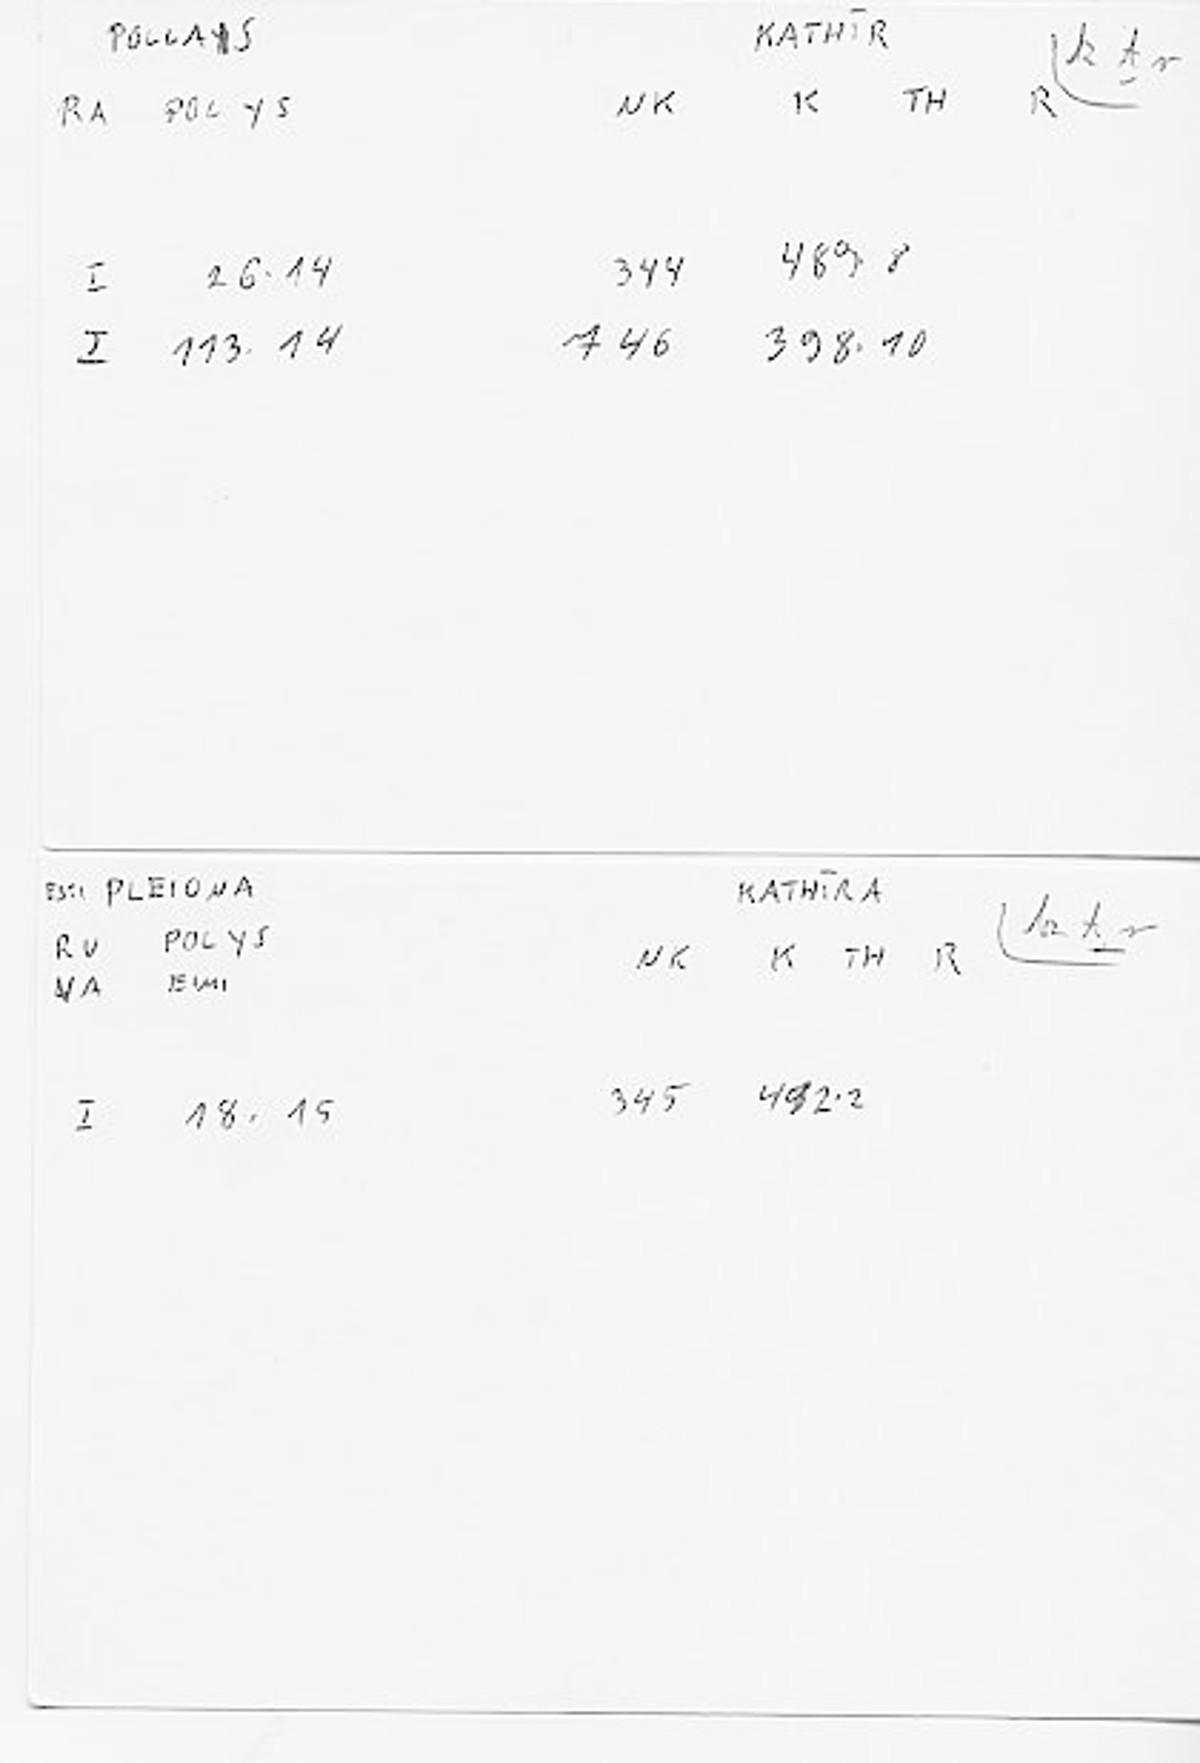 POLLAS KATHĪR
RA POLYS NK K TH R kṯr
I 26.14 344 489.8
I 113.14 746 398.10
ESTI PLEIONA KATHĪRA
RU POLYS NK K TH R kṯr
NA EIMI
I 18.15 345 492.2